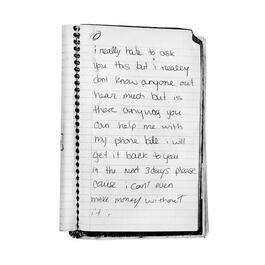 i really hate to ask
you this but i reaelly
dont know anyone out
hear much but is
there anyway you
can help me with
my phone bill i will
get it back to you
in the next 3 days please
cause i cant even
make money without
it.